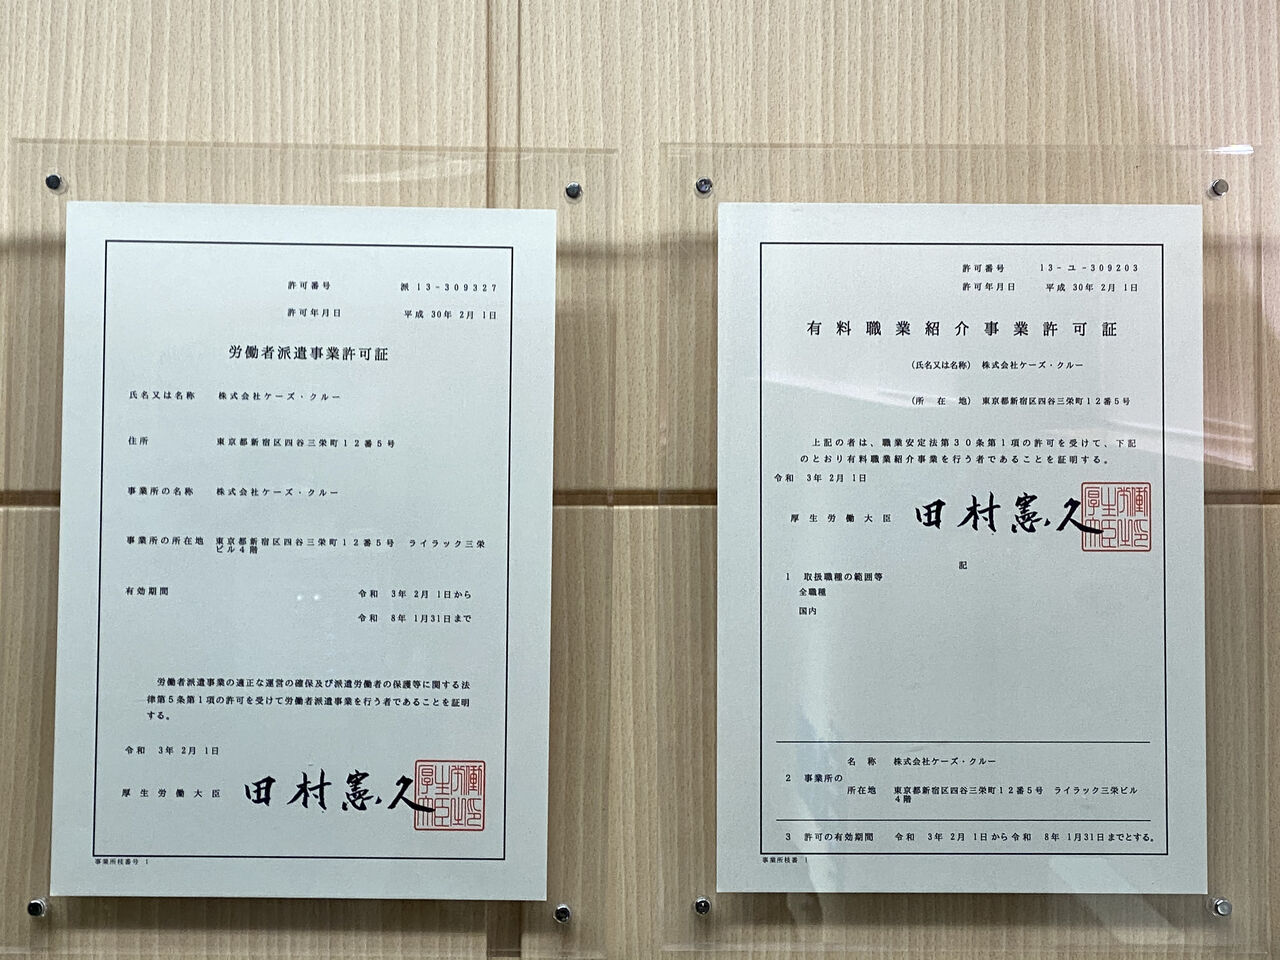 許可番号 派13-309327
許可年月日 平成 30年 2月 1日
労働者派遣事業許可証
氏名又は名称 株式会社ケーズ・クルー
住所 東京都新宿区四谷三栄町12番5号
事業所の名称 株式会社ケーズ・クルー
事業所の所在地 東京都新宿区四谷三栄町12番5号 ライラック三栄
ビル4階
有効期間 令和 3年 2月 1日から
令和 8年 1月31日まで
労働者派遣事業の適正な運営の確保及び派遣労働者の保護等に関する法
律第5条第1項の許可を受けて労働者派遣事業を行う者であることを証明
する。
令和 3年 2月 1日
厚生労働大臣 田村憲久
厚生労働大臣印
事業所枝番号 1
許可番号 13-ユ-309203
許可年月日 平成 30年 2月 1日
有料職業紹介事業許可証
(氏名又は名称) 株式会社ケーズ・クルー
(所在地) 東京都新宿区四谷三栄町12番5号
上記の者は、職業安定法第30条第1項の許可を受けて、下記
のとおり有料職業紹介事業を行う者であることを証明する。
令和 3年 2月 1日
厚生労働大臣 田村憲久
厚生労働大臣印
記
1 取扱職種の範囲等
全職種
国内
名称 株式会社ケーズ・クルー
2 事業所の
所在地 東京都新宿区四谷三栄町12番5号 ライラック三栄ビル
4階
3 許可の有効期間 令和 3年 2月 1日から令和 8年 1月31日までとする。
事業所枝番 1